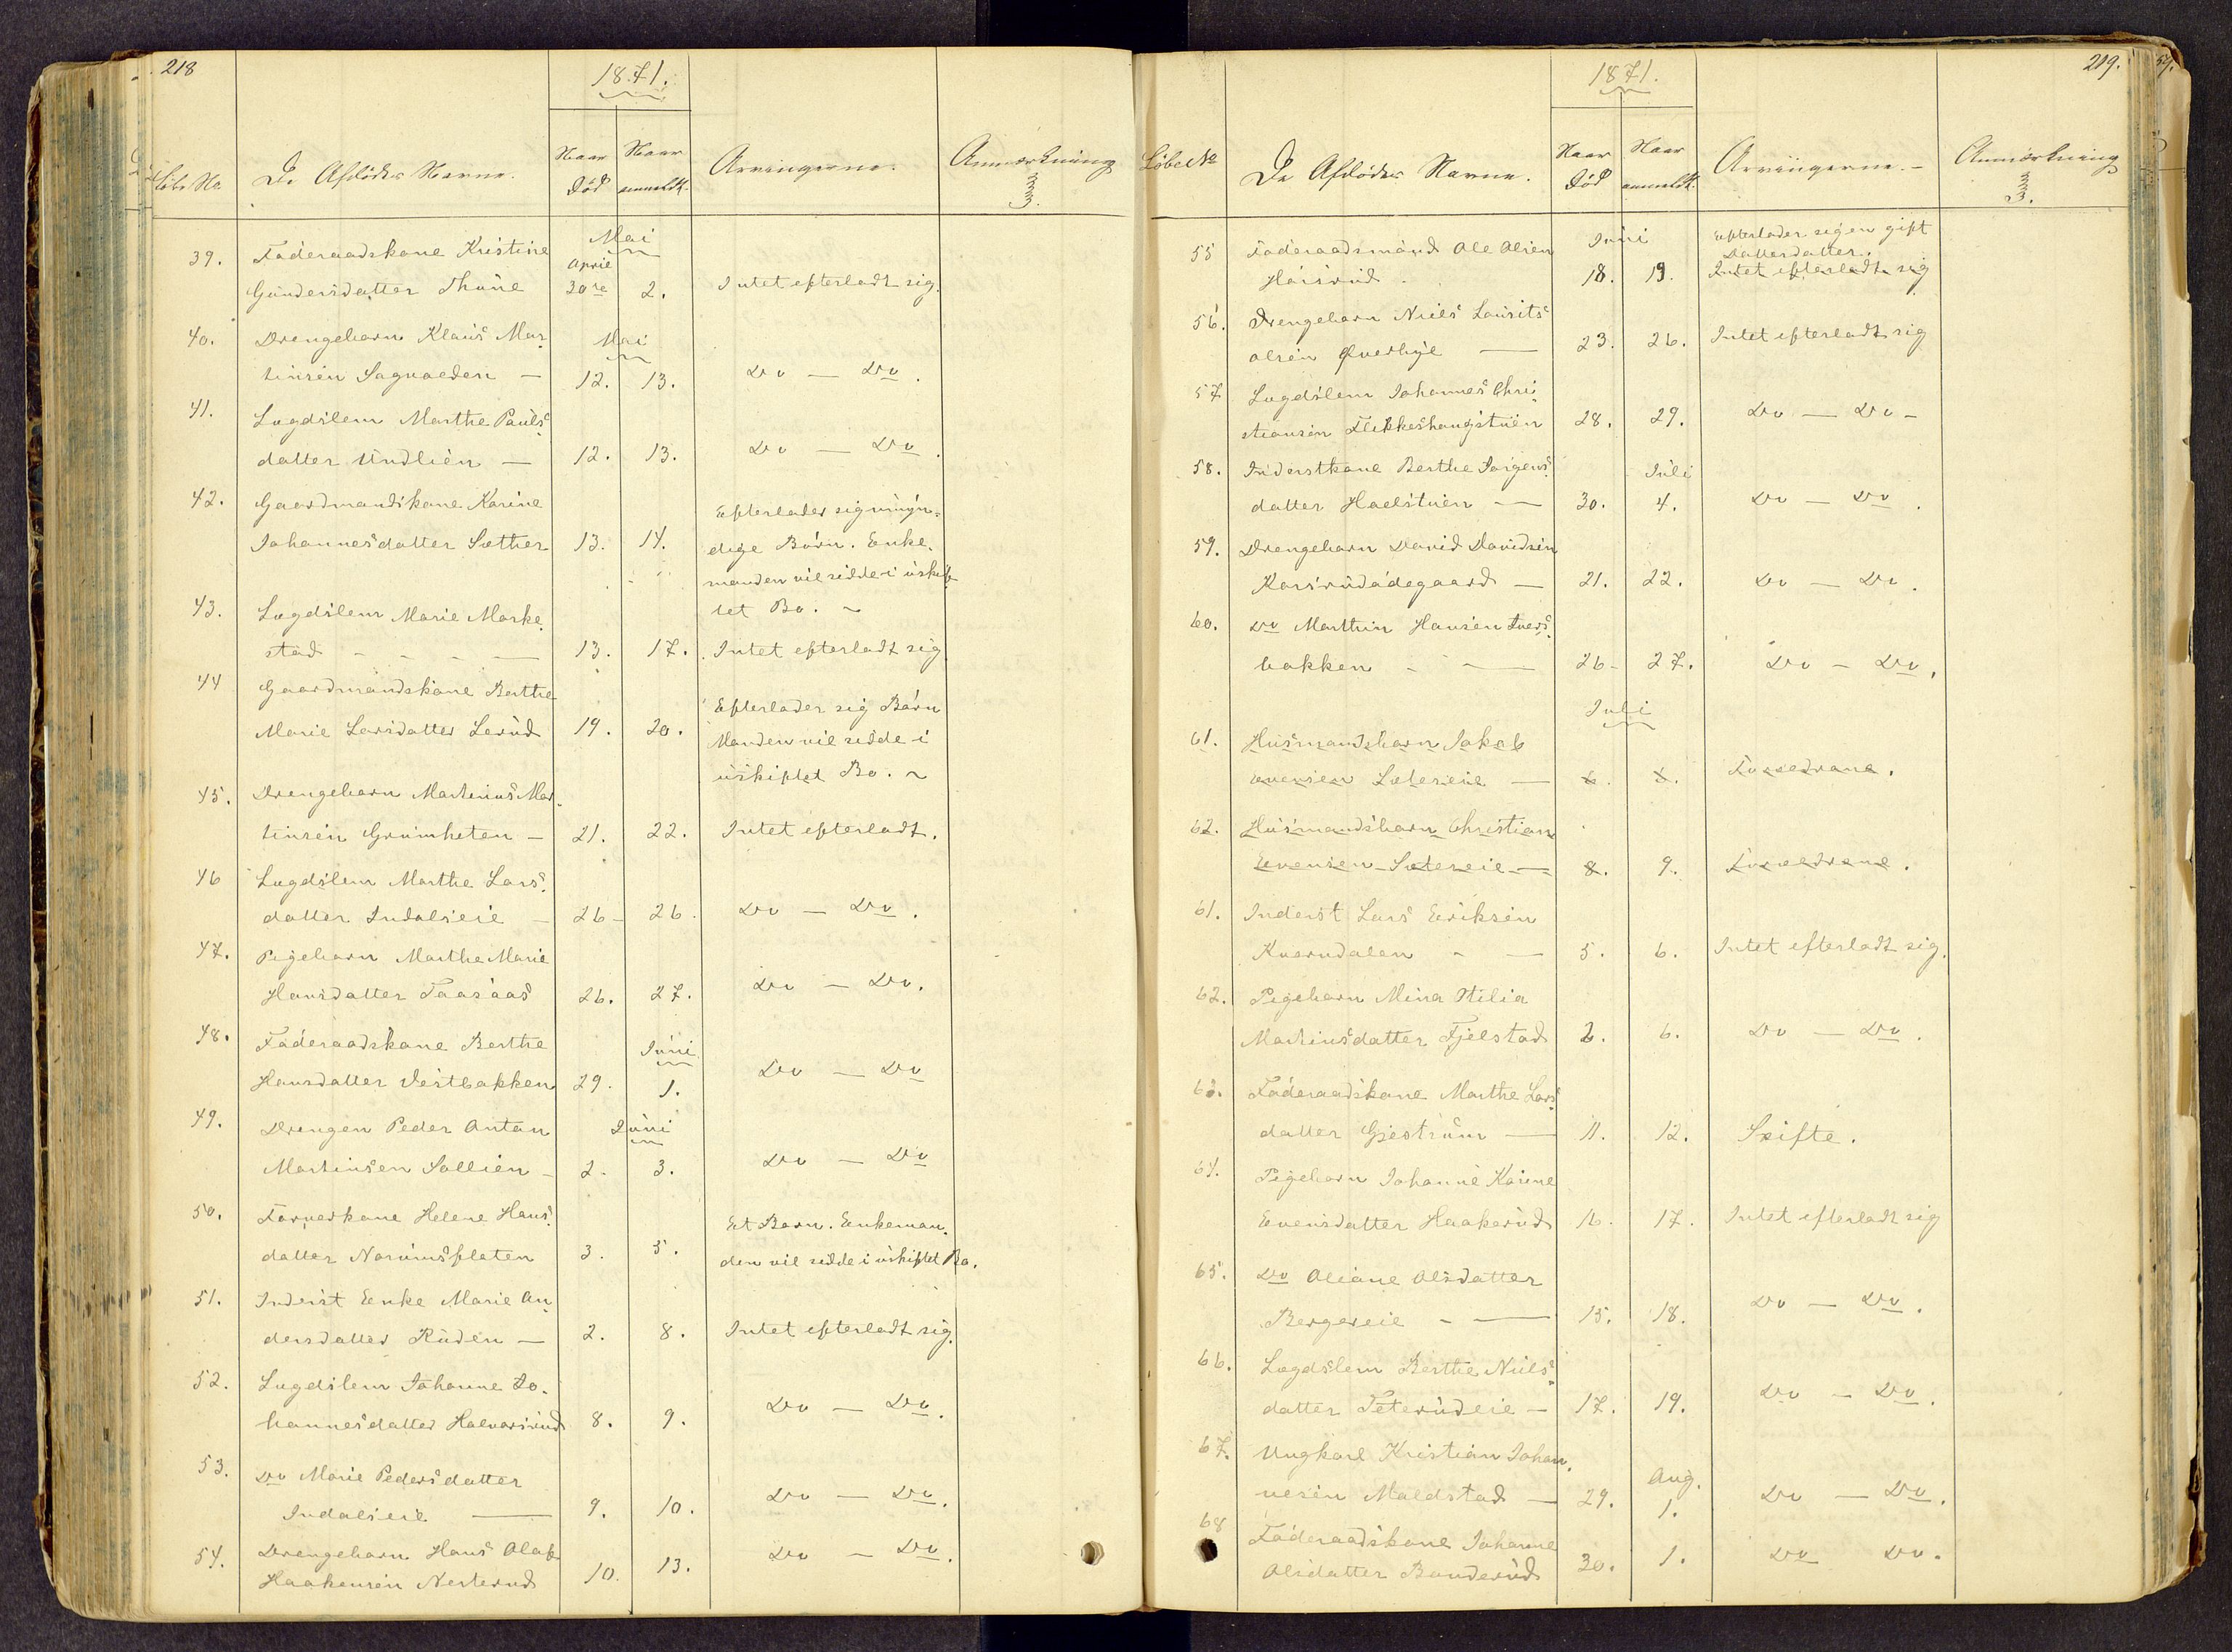 218
1871.
Løbe No.
De Afdødes Navne.
Naar Død
Naar anmeldt.
Arvingerne.
Anmærkning
39. Føderaadskone Kristine
Mai
April
Gundersdatter Thune 30te 2. Intet efterladt sig.
40. Drengebarn Klaus Mar-
Mai
tinsen Sagvolden — 12. 13. Do — Do.
41. Lægdslem Marthe Pauls-
datter Undlien — 12. 13. Do — Do.
42. Gaardmandskone Karine
Efterlader sig umyn-
Johannesdatter Sæther 13. 14. dige Børn. Enke-
manden vil sidde i uskif-
tet Bo. ~
43. Lægdslem Marie Marke-
stad - - - — 13. 17. Intet efterladt sig
44 Gaardmandskone Berthe
Efterlader sig Børn
Marie Larsdatter Lerud 19. 20. Manden vil sidde i
uskiftet Bo. ~
45. Drengebarn Martinius Mar-
tinsen Grimheten — 21. 22. Intet efterladt.
46 Lægdslem Marthe Lars-
datter Indalseie — 26 - 26. Do — Do.
47. Pigebarn Marthe Marie
Hansdatter Taasaas 26. 27. Do — Do.
48. Føderaadskone Berthe
Juni
Hansdatter Vestbakken 29. 1. Do — Do
49. Drengen Peder Anton
Juni
Martinsen Sollien - 2. 3. Do — Do
50. Farverkone Helene Hans-
Et Barn. Enkeman-
datter Narumsflaten 3. 5. den vil sidde i uskiftet Bo.
51. Inderst Enke Marie An-
dersdatter Ruden — 2. 8. Intet efterladt sig.
52. Lægdslem Johanne Jo-
hannesdatter Halvorsrud 8. 9. Do — Do.
53. Do Marie Pedersdatter
Indalseie — 9. 10. Do — Do.
54. Drengebarn Hans Olaf
Haakensen Nesterud 10. 13. Do — Do.
219.
1871.
Løbe No
De Afdødes Navne.
Naar Død
Naar anmeldt.
Arvingerne. -
Anmærkning
55 Føderaadsmand Ole Olsen
Juni
Efterlader sig en gift
Datterdatter.
18. 19. Intet efterladt sig
56. Drengebarn Niels Laurits
Olsen Øverbye — 23. 26. Intet efterladt sig
57 Lægdslem Johannes Chri-
stiansen Flikkeshaugstuen 28. 29. Do — Do -
58. Inderstkone Berthe Jørgens-
Juli
datter Haelstuen — 30. 4. Do — Do.
59. Drengebarn David Davidsen
Korsrudødegaard — 21. 22. Do — Do.
60. Do Marthin Hansen Tvers-
bakken - — 26 - 27. Do — Do.
Juli
61. Husmandsbarn Jakob
Evensen Sætereie — 6. 8. Forældrene.
62. Husmandsbarn Christian
Evensen Sætereie — 8. 9. Forældrene.
61. Inderst Lars Eriksen
Kværndalen - — 5. 6. Intet efterladt sig.
62. Pigebarn Mina Otilia
Martinsdatter Fjelstad 2. 6. Do — Do.
63. Føderaadskone Marthe Lars-
datter Gjestrum — 11. 12. Skifte.
64. Pigebarn Johanne Karine
Evensdatter Haakerud 16. 17. Intet efterladt sig
65. Do Oliane Olsdatter
Bergereie - — 15. 18. Do — Do.
66. Lægdslem Berthe Niels-
datter Teterudeie — 17. 19. Do — Do.
67. Ungkarl Kristian Johan-
Aug.
nesen Maldstad — 29. 1. Do — Do.
68 Føderaadskone Johanne
Olsdatter Bonderud 30. 1. Do Do.